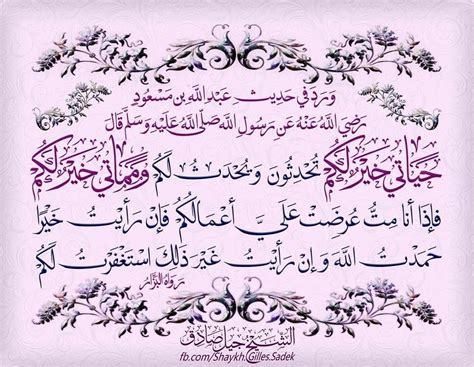 وَرَدَ فِي حَدِيثِ عَبْدِ اللهِ بنِ مَسْعُودٍ
رَضِيَ اللهُ عَنْهُ عَن رَسُولِ اللهِ صَلَّى اللهُ عَلَيْهِ وَسَلَّمَ قَالَ
حَيَاتِي خَيْرٌ لَكُمْ تُحْدِثُونَ وَيُحْدَثُ لَكُمْ وَمَمَاتِي خَيْرٌ لَكُمْ
فَإِذَا أَنَا مِتُّ عُرِضَتْ عَلَيَّ أَعْمَالُكُمْ فَإِن رَأَيْتُ خَيْرًا
حَمِدتُ اللهَ وَإِن رَأَيْتُ غَيْرَ ذَلِكَ اسْتَغْفَرْتُ لَكُمْ
رَوَاهُ البَزَّار
الشَّيْخ جِيل صَادِق
fb.com/Shaykh.Gilles.Sadek